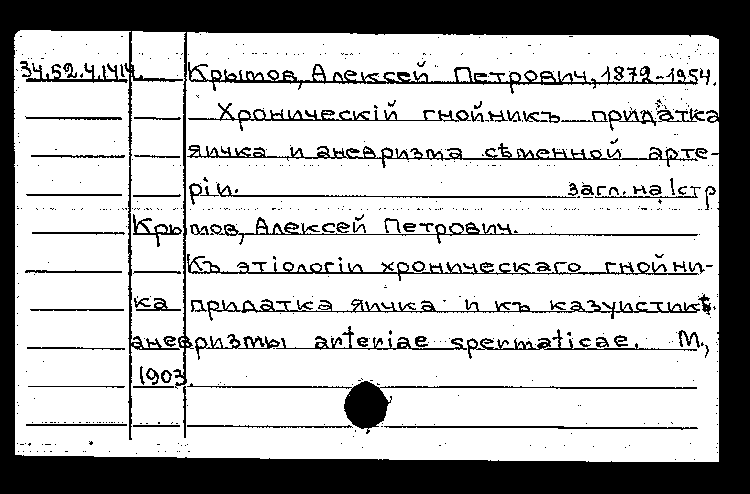 34.52.4.1414. Крымов, Алексей Петрович, 1872-1954.
Хроническій гнойникъ придатка
яичка и аневризма сѣменной арте-
ріи. загл. на 1 стр
Крымов, Алексей Петрович.
Къ этіологіи хроническаго гнойни-
ка придатка яичка и къ казуистикѣ
аневризмы arteriae spermaticae. М.,
1903.